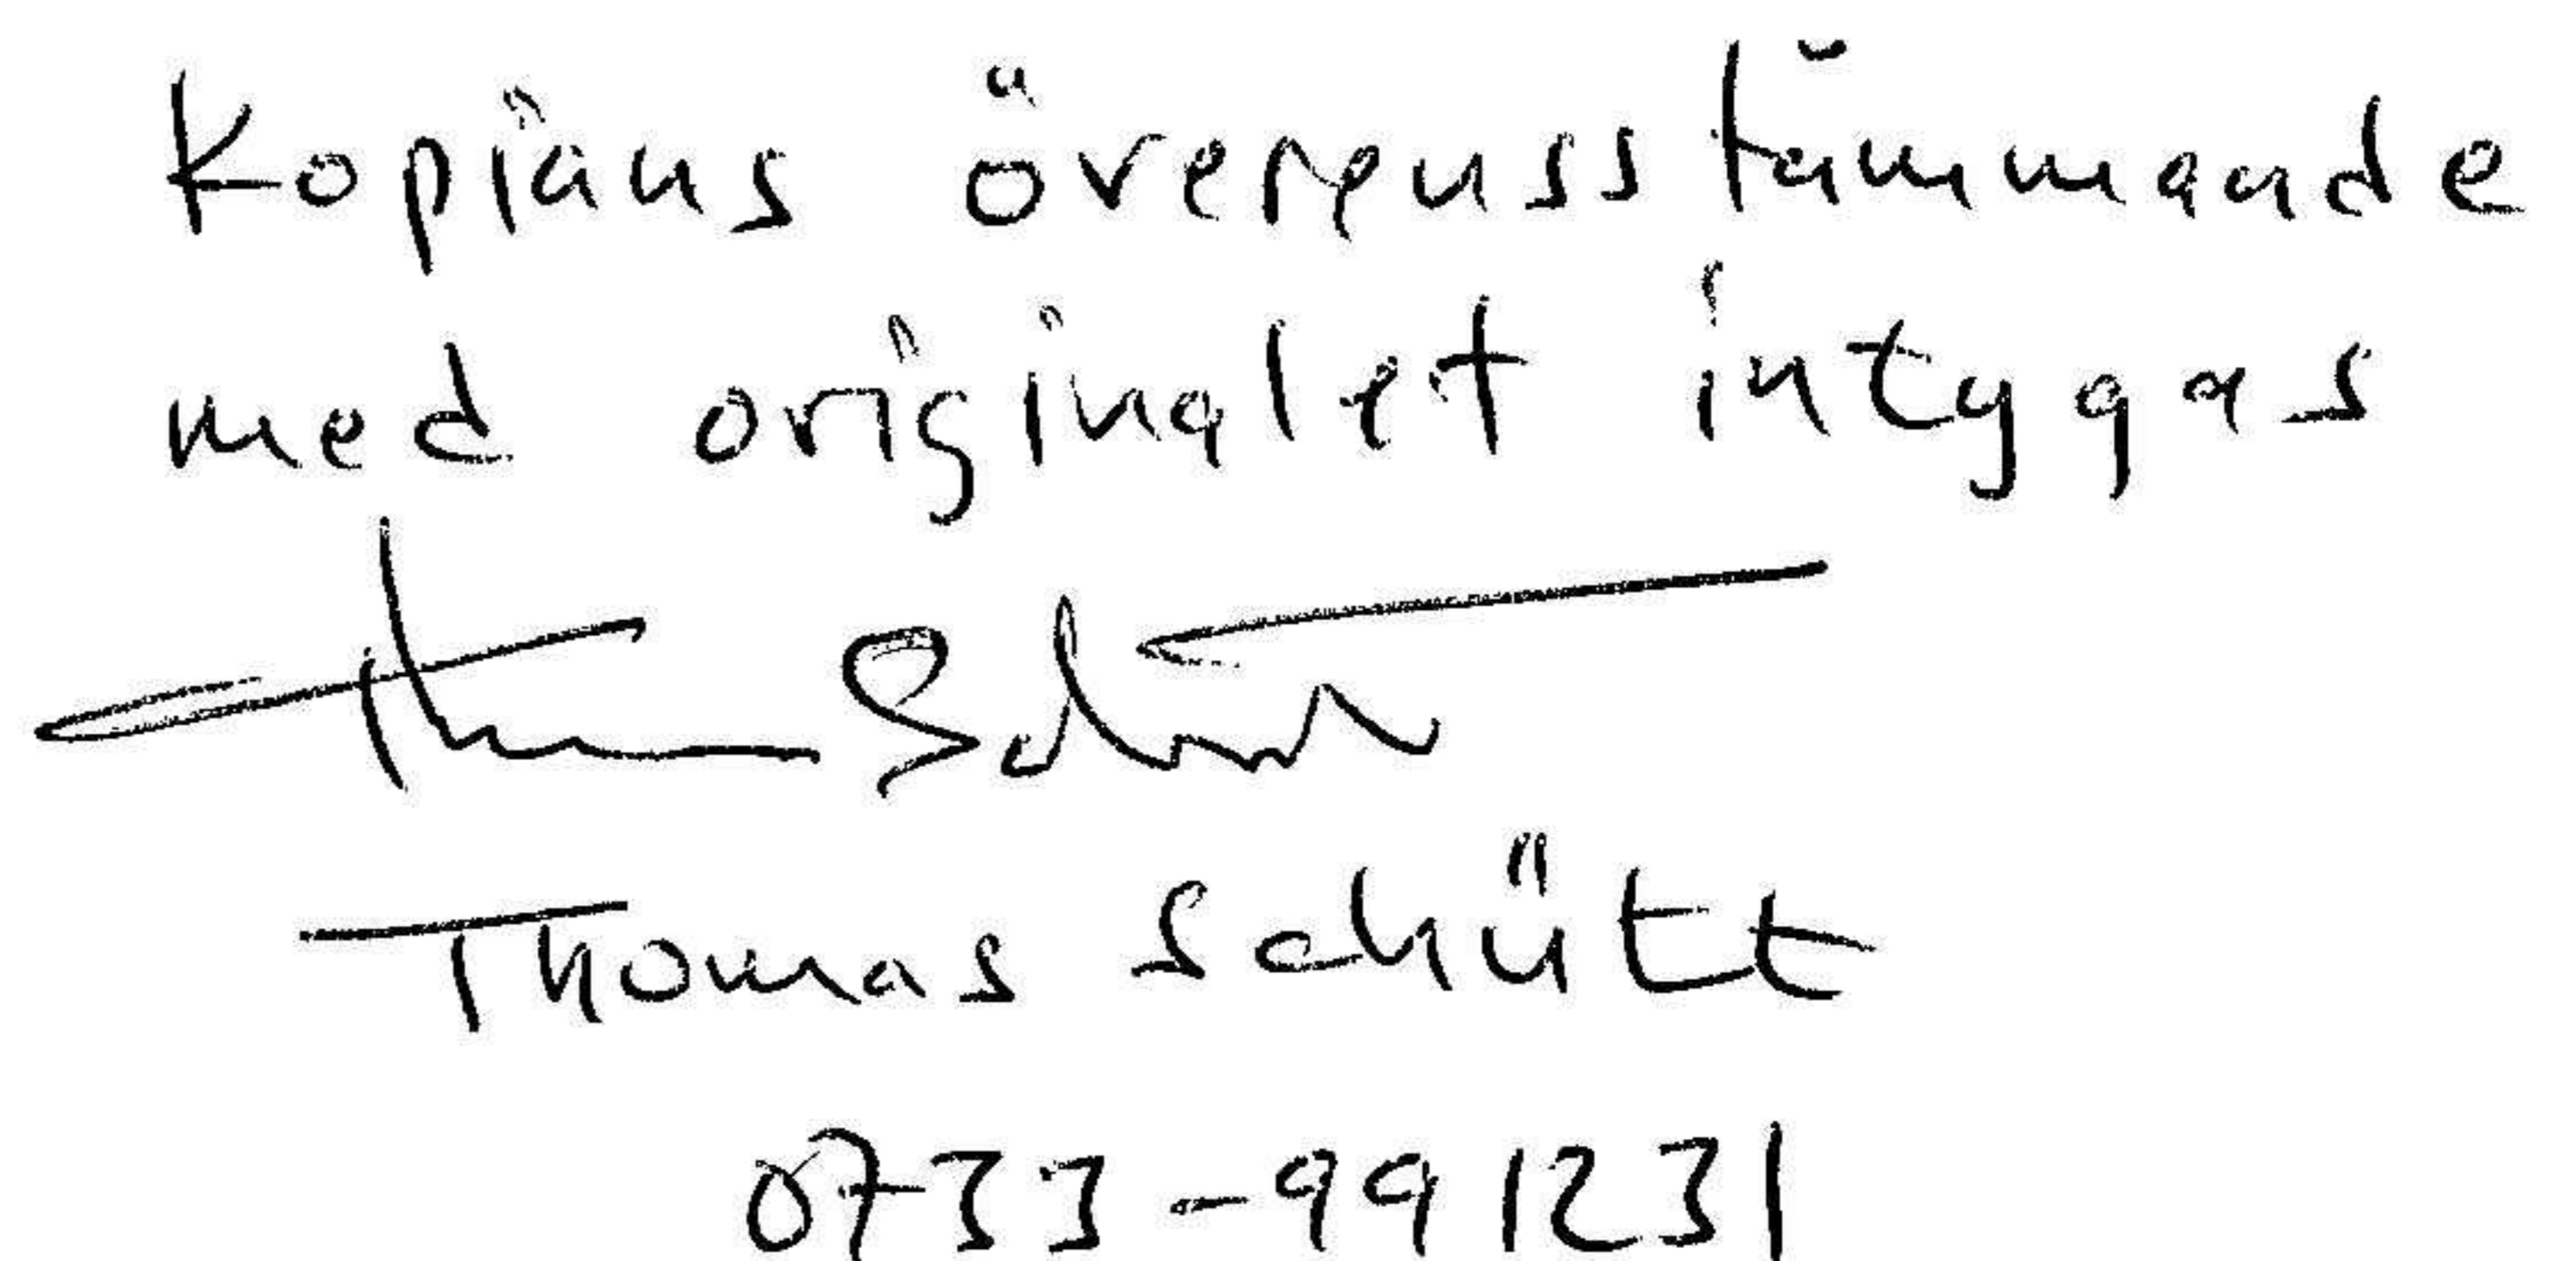 Kopians överensstämmande
med originalet intygas
Thomas Schütt
0733-991231